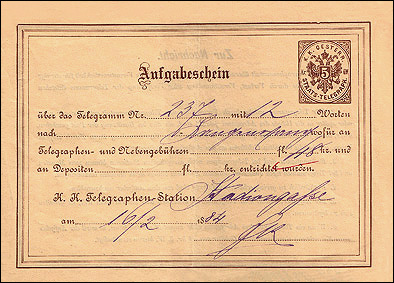 K. K. OESTERR. STAATS-TELEGRAPH.
5
Aufgabeschein
über das Telegramm Nr. 237 mit 12 Worten
nach wofür an
Telegraphen- und Nebengebühren fl. 48 kr. und
an Depositen fl. kr. entrichtet wurden.
K. K. Telegraphen-Station Stadiongasse
am 16/2 1884